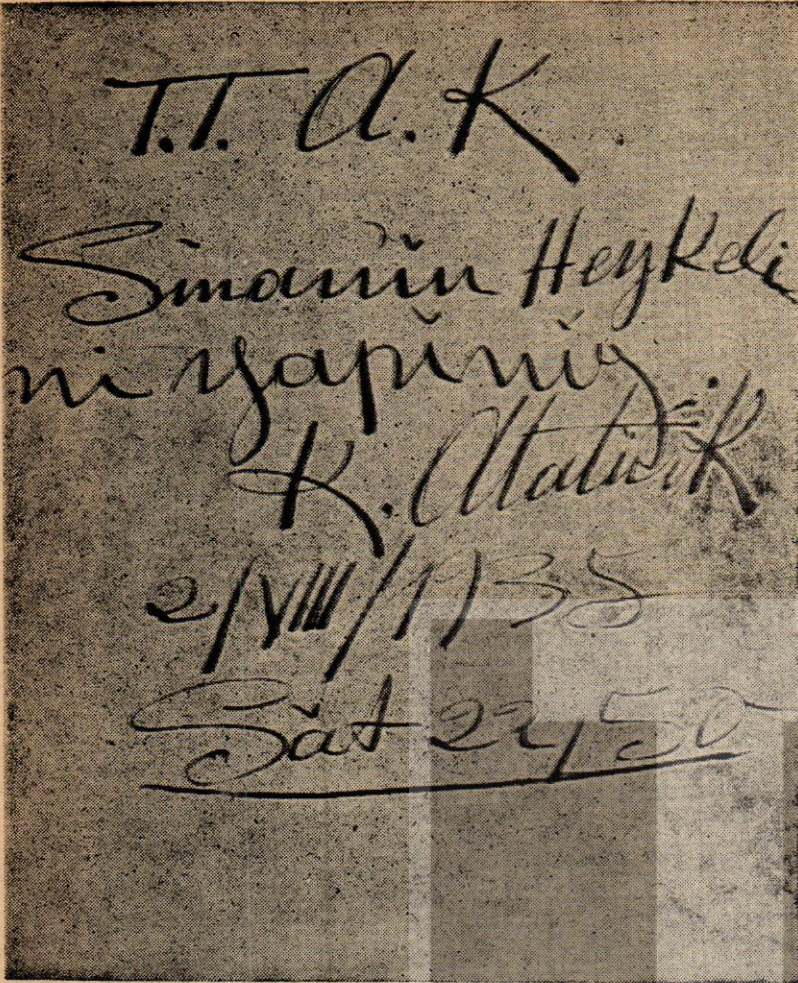 T.T. A. K.
Sinanın Heykeli
ni yapınız
K. Atatürk
2/VIII/1935
Sāt 22,50